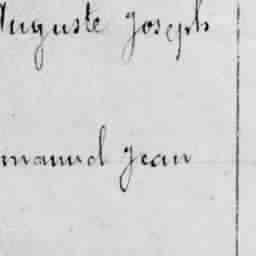 Auguste Joseph
manuel Jean